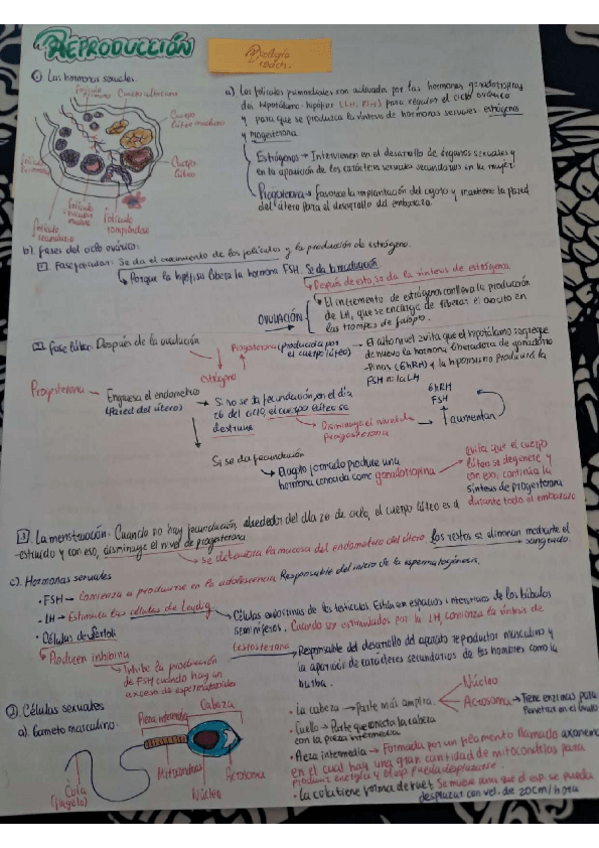 REPRODUCCIÓN
Biología
1) Las hormonas sexuales.
Folículo primario
Cuerpo albicans
Cuerpo lúteo maduro
Cuerpo lúteo
Folículo primario
Folículo secundario
Folículo maduro
Folículo rompiéndose
a) Los folículos primordiales son activados por las hormonas gonadotropas
del hipotálamo-hipófisis (LH, FSH) para regular el ciclo ovárico
y para que se produzca la síntesis de hormonas sexuales: estrógenos
y progesterona
Estrógenos → Intervienen en el desarrollo de órganos sexuales y
en la aparición de los caracteres sexuales secundarios en la mujer.
Progesterona → favorece la implantación del cigoto y mantiene la pared
del útero para el desarrollo del embarazo.
b) Fases del ciclo ovárico:
1 Fase folicular: Se da el crecimiento de los folículos y la producción de estrógeno.
Porque la hipófisis libera la hormona FSH. Se da la maduración
Después de esto, se da la síntesis de estrógeno
OVULACIÓN
El incremento de estrógeno conlleva la producción
de LH, que se encarga de liberar el óvocito en
las trompas de falopio.
2 Fase lútea: Después de la ovulación
Progesterona (producida por
el cuerpo lúteo)
estrógeno
El alto nivel evita que el hipotálamo segregue
de nuevo la hormona liberadora de gonadotro
-pinas (GnRH) y la hipófisis no produzca la
FSH ni la LH
Progesterona
Engruesa el endometrio
(Pared del útero)
Si no se da fecundación, en el día
26 del ciclo, el cuerpo lúteo se
destruye
Disminuye el nivel de
progesterona
GnRH
FSH
aumentan
Si se da fecundación
El cigoto formado produce una
hormona conocida como gonadotropina
evita que el cuerpo
lúteo se degenere y
con eso, continúa la
síntesis de progesterona
durante todo el embarazo
3 La menstruación: Cuando no hay fecundación, alrededor del día 26 de ciclo, el cuerpo lúteo es d
-estruido y con eso, disminuye el nivel de progesterona
se deteriora la mucosa del endometrio del útero, los restos se eliminan mediante el
sangrado.
c) Hormonas sexuales
• FSH → Comienza a producirse en la adolescencia Responsable del inicio de la espermatogénesis.
• LH → Estimula las células de Leydig
Células endocrinas de los testículos. Están en espacios intersticios de los túbulos
seminíferos. Cuando son estimulados por la LH, comienza la síntesis de
testosterona
Responsable del desarrollo del aparato reproductor masculino y
la aparición de caracteres secundarios de los hombres como la
barba.
• Células de Sertoli
Producen inhibina
Inhibe la producción
de FSH cuando hay un
exceso de espermatozoides
2) Células sexuales
a) Gameto masculino:
Pieza intermedia
Cabeza
Cola
(flagelo)
Mitocondrias
Núcleo
Acrosoma
• La cabeza → Parte más amplia.
Núcleo
Acrosoma → Tiene enzimas para
Penetrar en el óvulo
• Cuello → Parte que conecta la cabeza
con la pieza intermedia
• Pieza intermedia → Formada por un filamento llamado axonema
en el cual hay una gran cantidad de mitocondrias para
producir energía y desplazarse
• La cola tiene forma de Se mueve para que el esp. se pueda
desplazar con vel. de 20cm/hora